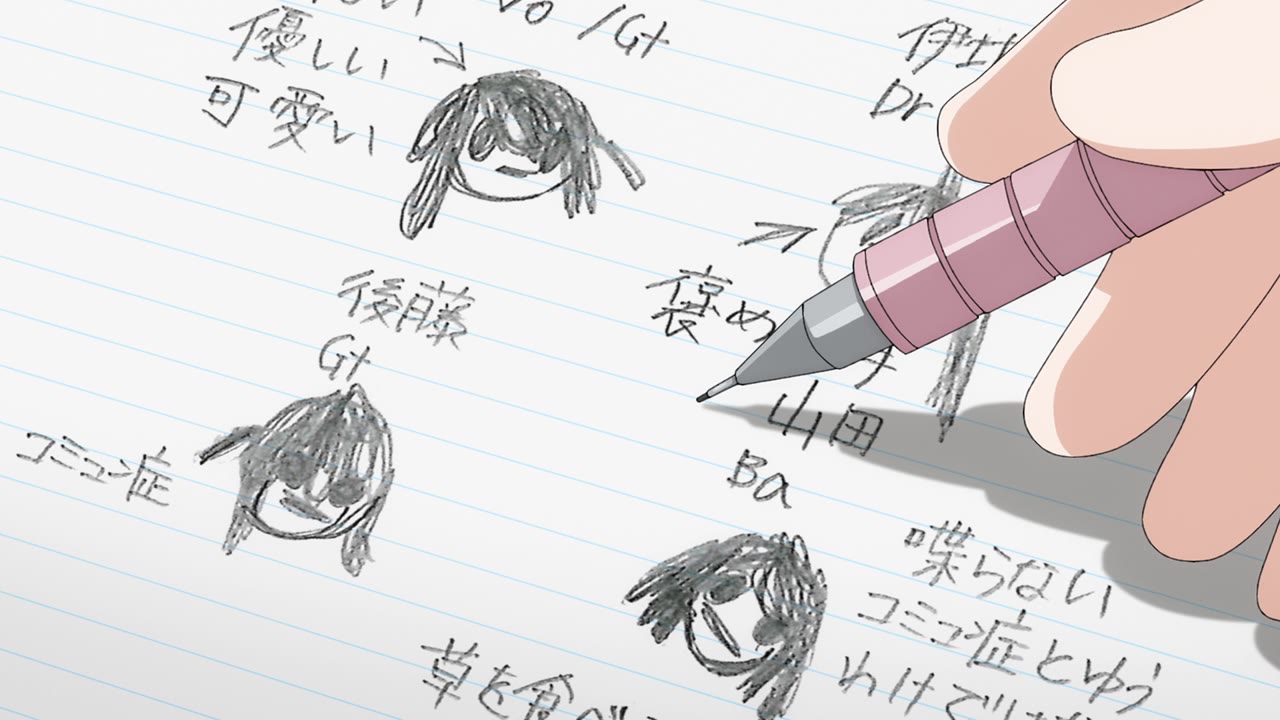 Vo/Gt
優しい
可愛い
伊
Dr
後藤
Gt
コミュ症
褒め
山田
Ba
喋らない
コミュ症とゆう
わけでは
草を食べ